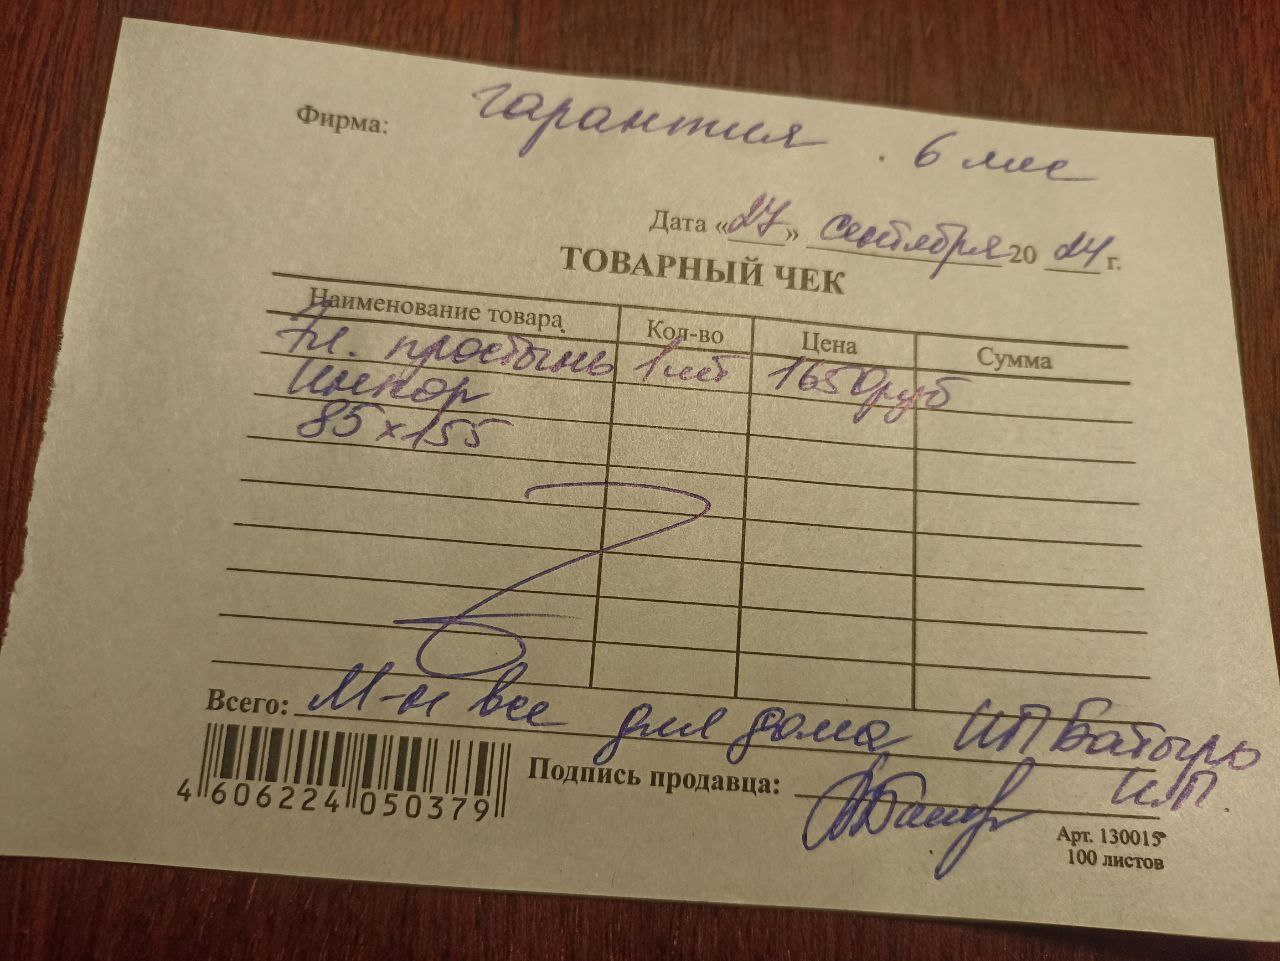 Фирма: гарантия . 6 мес
Дата «27» сентября 2024 г.
ТОВАРНЫЙ ЧЕК
Наименование товара Кол-во Цена Сумма
Эл. простынь 1 шт 1650руб
Инкор
85х155
Всего: М-н все для дома ИП Батырь
Подпись продавца: ИП.
4 606224 050379
Арт. 130015
100 листов